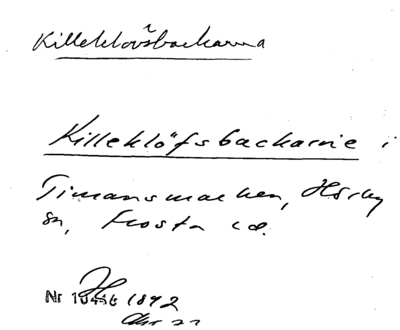 Killeklövsbackarna
Killeklöfsbackarne i
Timansmarken, Hörby
sn, Frosta hd.
Nr 1892